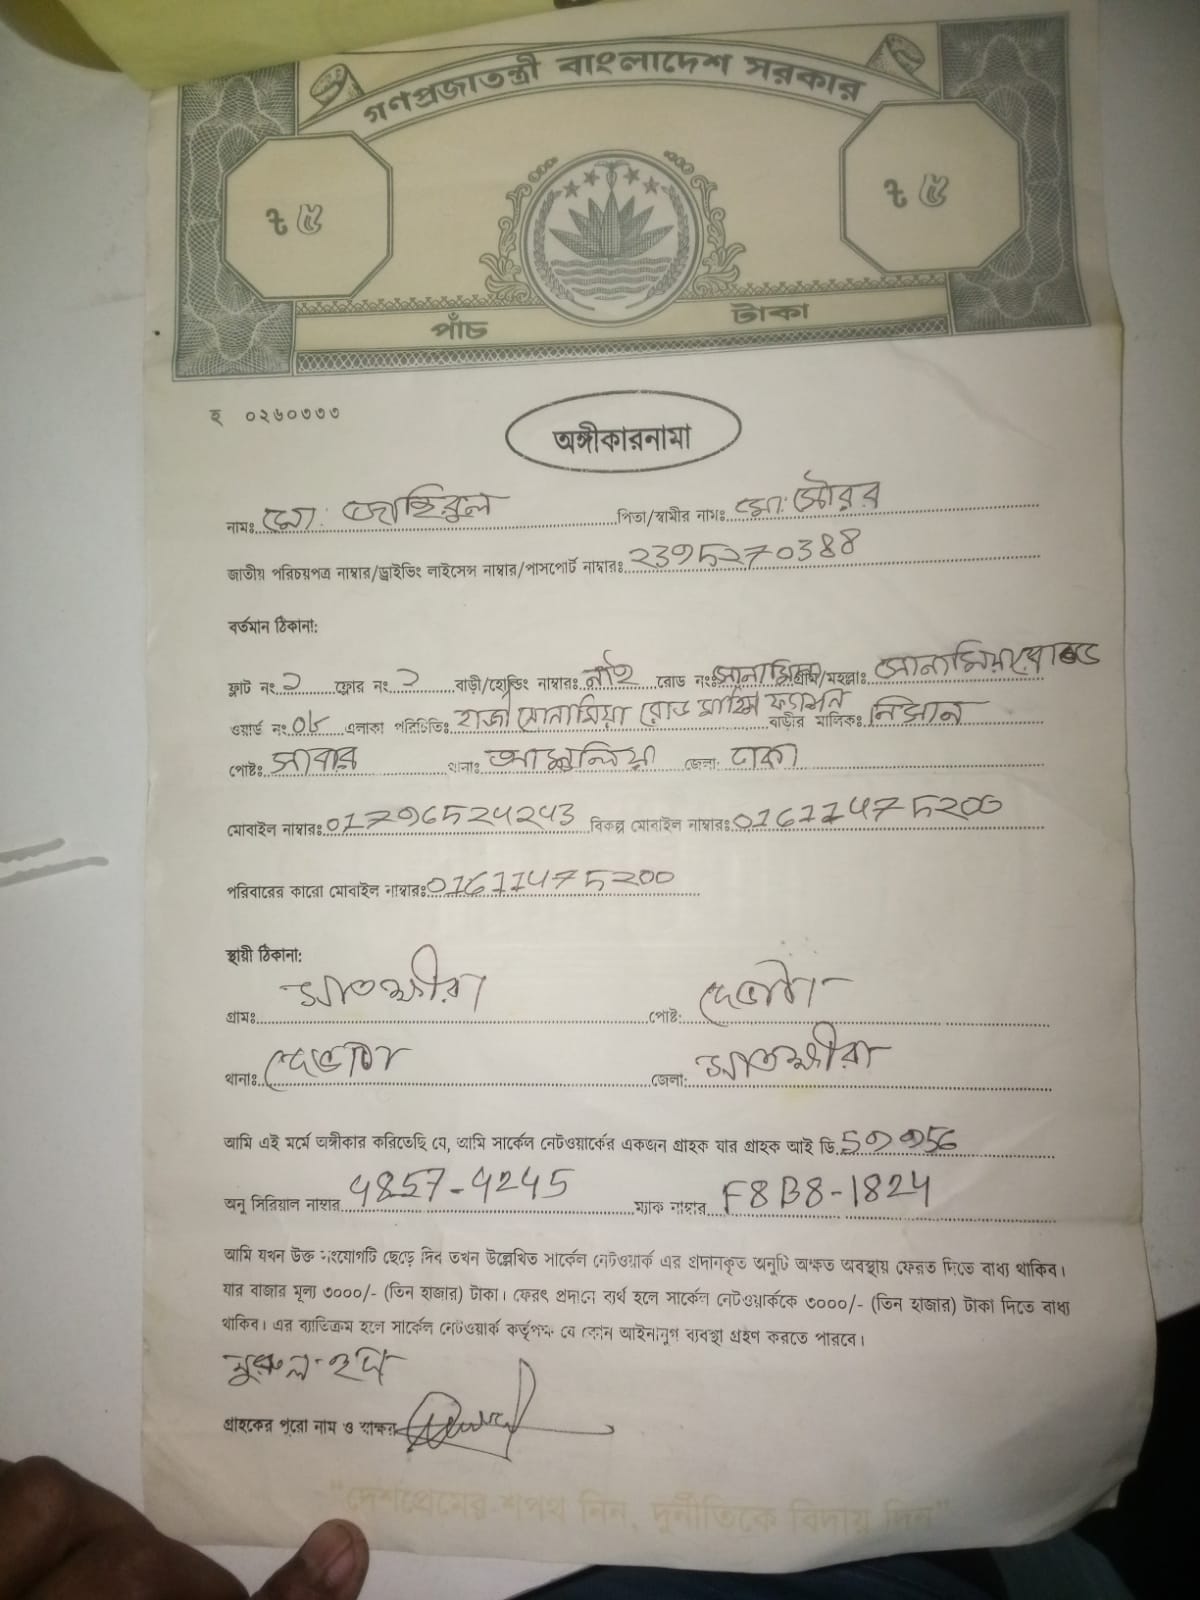 গণপ্রজাতন্ত্রী বাংলাদেশ সরকার
৳ ৫ ৳ ৫
পাঁচ টাকা
হ ০২৬০৩৩৩
অঙ্গীকারনামা
নামঃ মো: জাহিরুল পিতা/স্বামীর নামঃ মো:
জাতীয় পরিচয়পত্র নাম্বার/ড্রাইভিং লাইসেন্স নাম্বার/পাসপোর্ট নাম্বারঃ
বর্তমান ঠিকানা:
ফ্লাট নং ২ ফ্লোর নং ২ বাড়ী/হোল্ডিং নাম্বারঃ নাই রোড নংঃ সোনামিয়া গ্রাম/মহল্লাঃ সোনামিয়া
ওয়ার্ড নং এলাকা পরিচিতিঃ হাজী সোনামিয়া রোড ফ্যাশন বাড়ীর মালিকঃ
পোষ্টঃ সাবার থানাঃ আশুলিয়া জেলা: ঢাকা
মোবাইল নাম্বারঃ বিকল্প মোবাইল নাম্বারঃ
পরিবারের কারো মোবাইল নাম্বারঃ 01611475200
স্থায়ী ঠিকানা:
গ্রামঃ সাতক্ষীরা পোষ্ট: দেভাটা
থানাঃ দেভাটা জেলা: সাতক্ষীরা
আমি এই মর্মে অঙ্গীকার করিতেছি যে, আমি সার্কেল নেটওয়ার্কের একজন গ্রাহক যার গ্রাহক আই ডি.
অনু সিরিয়াল নাম্বার ম্যাক নাম্বার F8B8-1824
আমি যখন উক্ত সংযোগটি ছেড়ে দিব তখন উল্লেখিত সার্কেল নেটওয়ার্ক এর প্রদানকৃত অনুটি অক্ষত অবস্থায় ফেরত দিতে বাধ্য থাকিব।
যার বাজার মূল্য ৩০০০/- (তিন হাজার) টাকা। ফেরৎ প্রদানে ব্যর্থ হলে সার্কেল নেটওয়ার্ককে ৩০০০/- (তিন হাজার) টাকা দিতে বাধ্য
থাকিব। এর ব্যতিক্রম হলে সার্কেল নেটওয়ার্ক কর্তৃপক্ষ যে কোন আইনানুগ ব্যবস্থা গ্রহণ করতে পারবে।
নুরুল
গ্রাহকের পুরো নাম ও স্বাক্ষর
"দেশপ্রেমের শপথ নিন, দুর্নীতিকে বিদায় দিন"